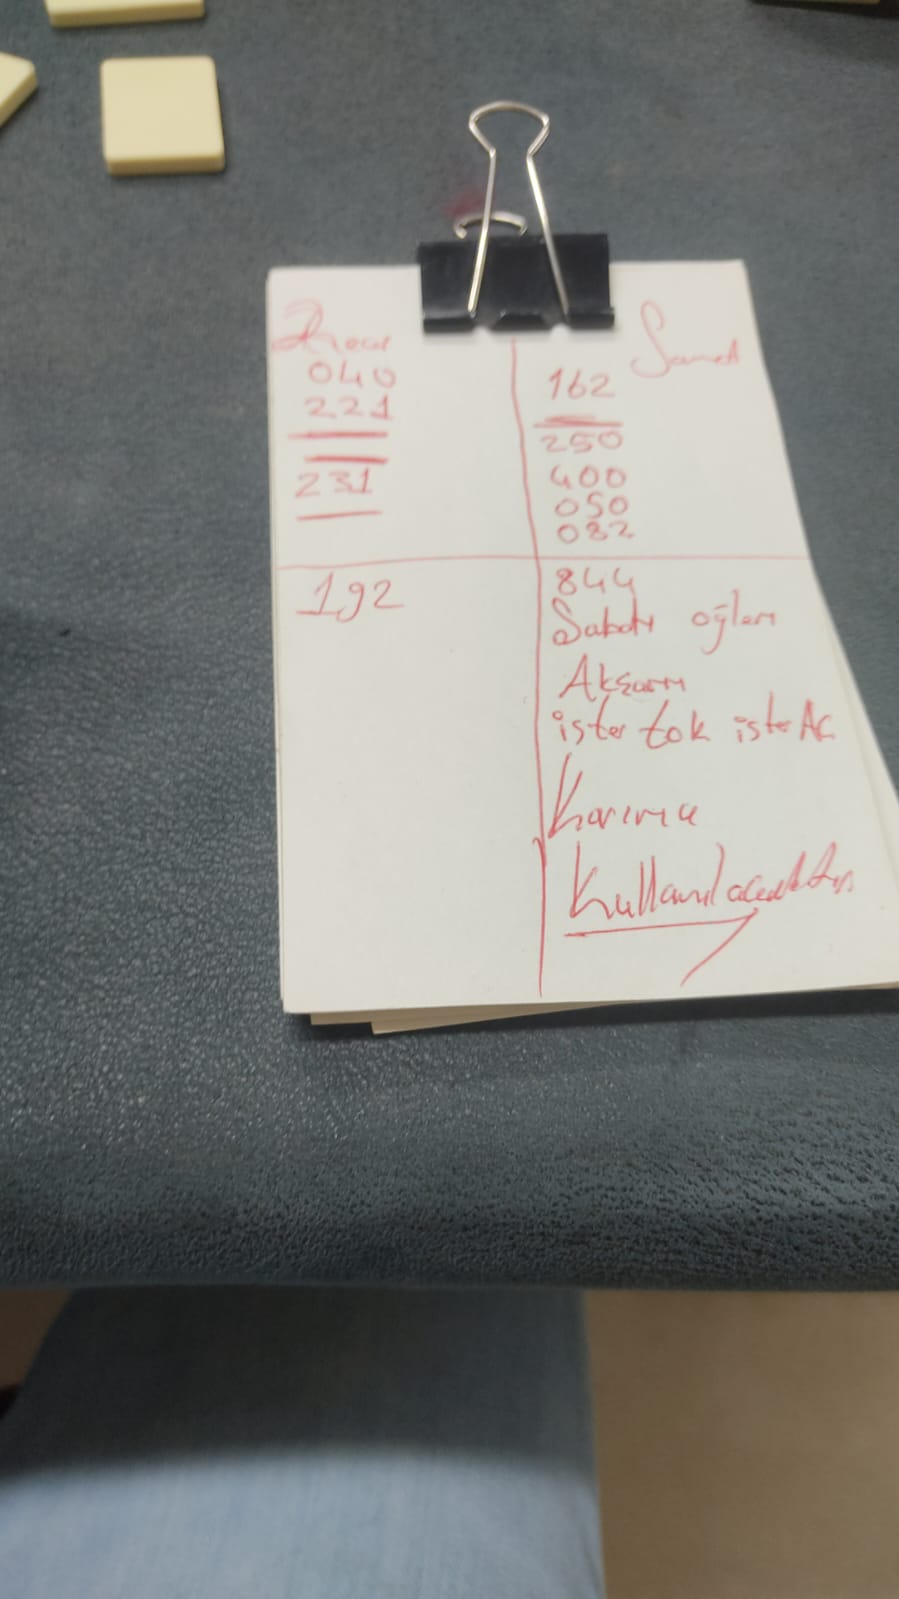 040
221
231
192
Samet
162
250
400
050
082
844
Sabah öğlen
Akşam
ister tok ister Aç
Karına
Kullanılacaktır